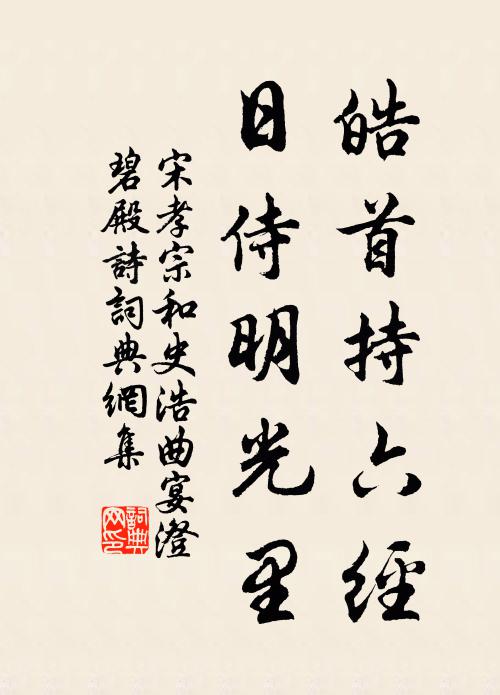 皓首持六經
日侍明光里
宋孝宗和史浩曲宴澄
碧殿詩詞典網集
詞典
网印